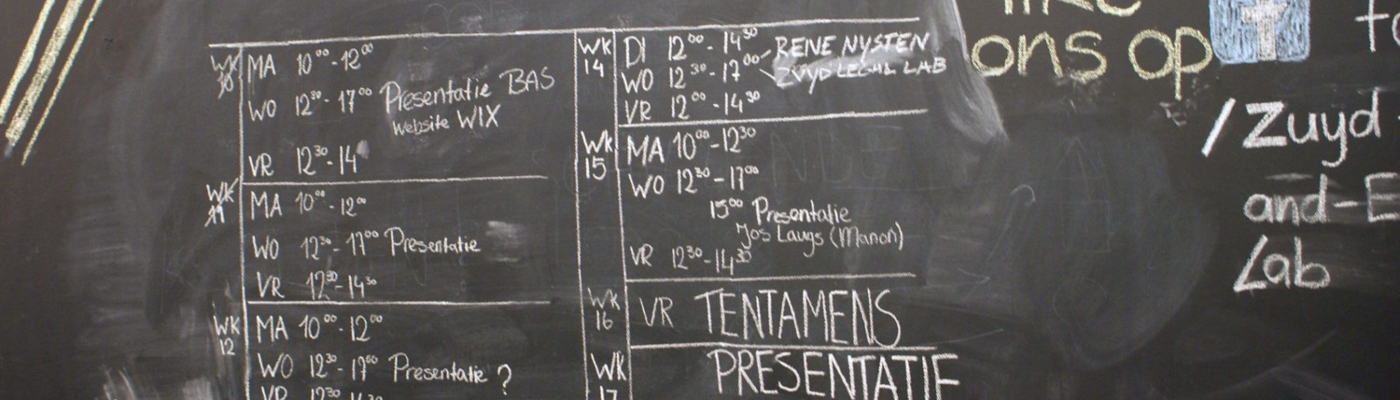 WK 10
MA 10⁰⁰-12⁰⁰
WO 12³⁰-17⁰⁰ Presentatie BAS
website WIX
VR 12³⁰-14
WK 11
MA 10⁰⁰-12⁰⁰
WO 12³⁰-17⁰⁰ Presentatie
VR 12³⁰-14³⁰
WK 12
MA 10⁰⁰-12⁰⁰
WO 12³⁰-17⁰⁰ Presentatie ?
VR 12³⁰-14³⁰
WK 14
DI 12⁰⁰-14³⁰
WO 12³⁰-17⁰⁰ RENE NYSTEN
ZUYD LEGAL LAB
VR 12⁰⁰-14³⁰
WK 15
MA 10⁰⁰-12³⁰
WO 12³⁰-17⁰⁰
15⁰⁰ Presentatie
Jos Laugs (Manon)
VR 12³⁰-14³⁰
WK 16
VR TENTAMENS
WK 17
PRESENTATIE
like
ons op f
/Zuyd
and-E
Lab